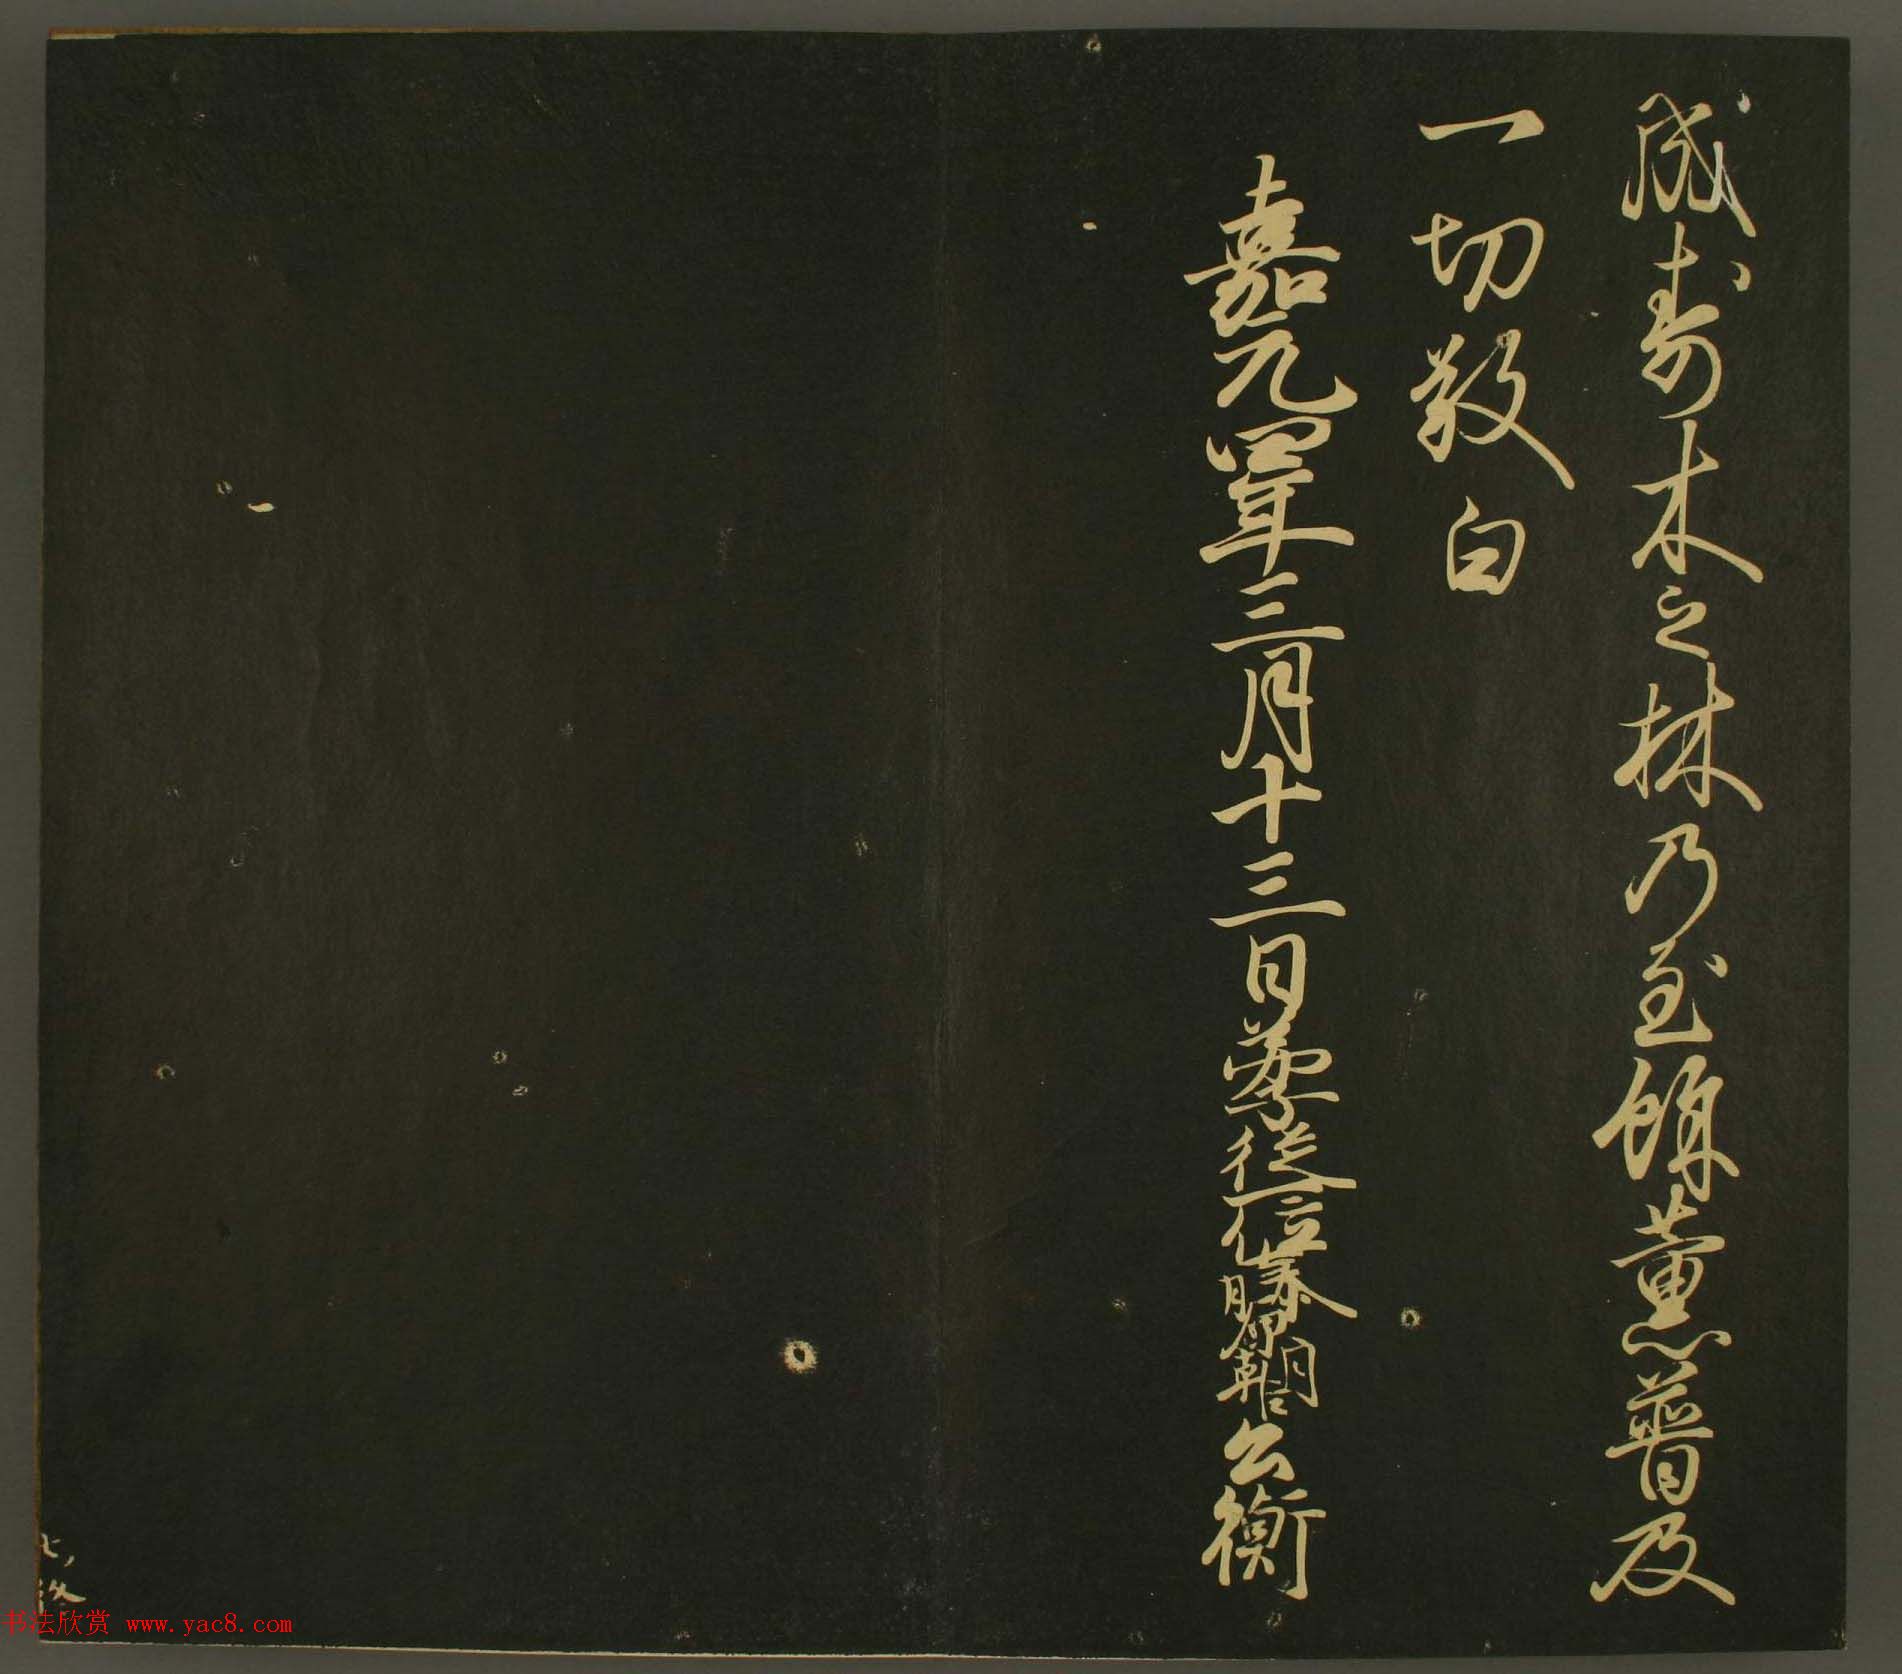 成寿木之林乃至餘薫普及
一切敬白
嘉元四年三月十三日菩薩從一位藤原朝臣公衡
七ノ終
书法欣赏 www.yac8.com